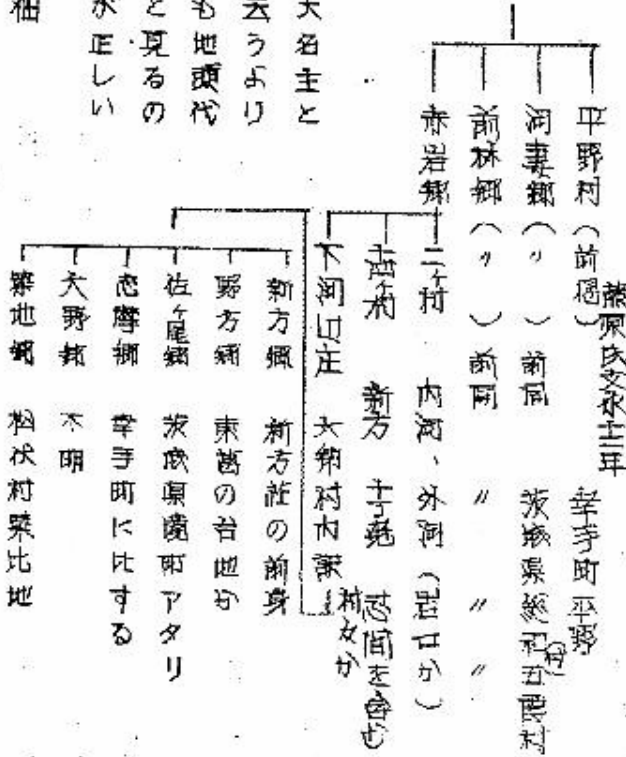 藤原氏文永十二年
平野村(前偈) 幸手町平野
河妻郷(〃)前同 茨城県総和五霞村
(村)
前林郷(〃)前同 〃 〃 〃
赤岩郷
二ヶ村 内河、外河(岩口か)
新方
恋間を含む
下河辺庄 大鄉村内訳
村々か
新方郷 新方荘の前身
野方郷 東葛の台地か
佐ヶ尾郷 茨城県境町アタリ
志摩郷 幸手町に比する
大野郷 不明
築地郷 松伏村築比地
大名主と
云うより
も地頭代
と見るの
が正しい